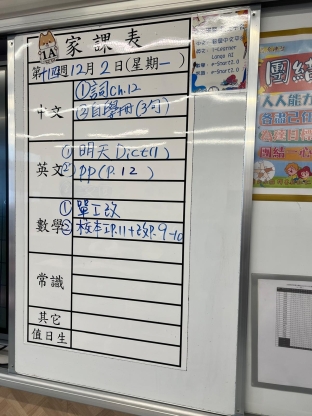 1A 家課表
第十四週12月2日(星期一)
中文 ①詞ch.12
②自學冊(3句)
英文 ① 明天Dict(1)
② pp(P.12)
數學 ① 單工改
② 校本工P.11+改P.9-10
常識
其它
值日生
e-Smart2.0
團結
人人能力
團結一心